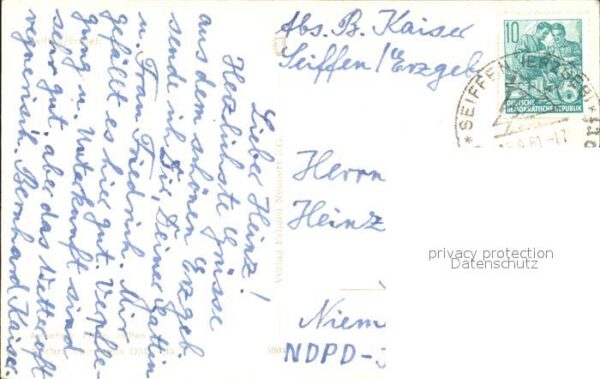 Abs. B. Kaiser
Seiffen/Erzgeb
10
DEUTSCHE
DEMOKRATISCHE REPUBLIK
* SEIFFEN (ERZGEB) *
Lieber Heinz!
Herzlichste Grüsse
aus dem schönen Erzgeb
sende ich Dir, Deiner Gattin
u. Frau Friedrich. Mir
gefällt es hier gut. Verpfle-
gung u. Unterkunft sind
sehr gut, aber das Wetter oft
regnerisch. Bernhard Kaiser.
Verlag Erhard Neubert
Herrn
Heinz
Niem
NDPD-
privacy protection
Datenschutz